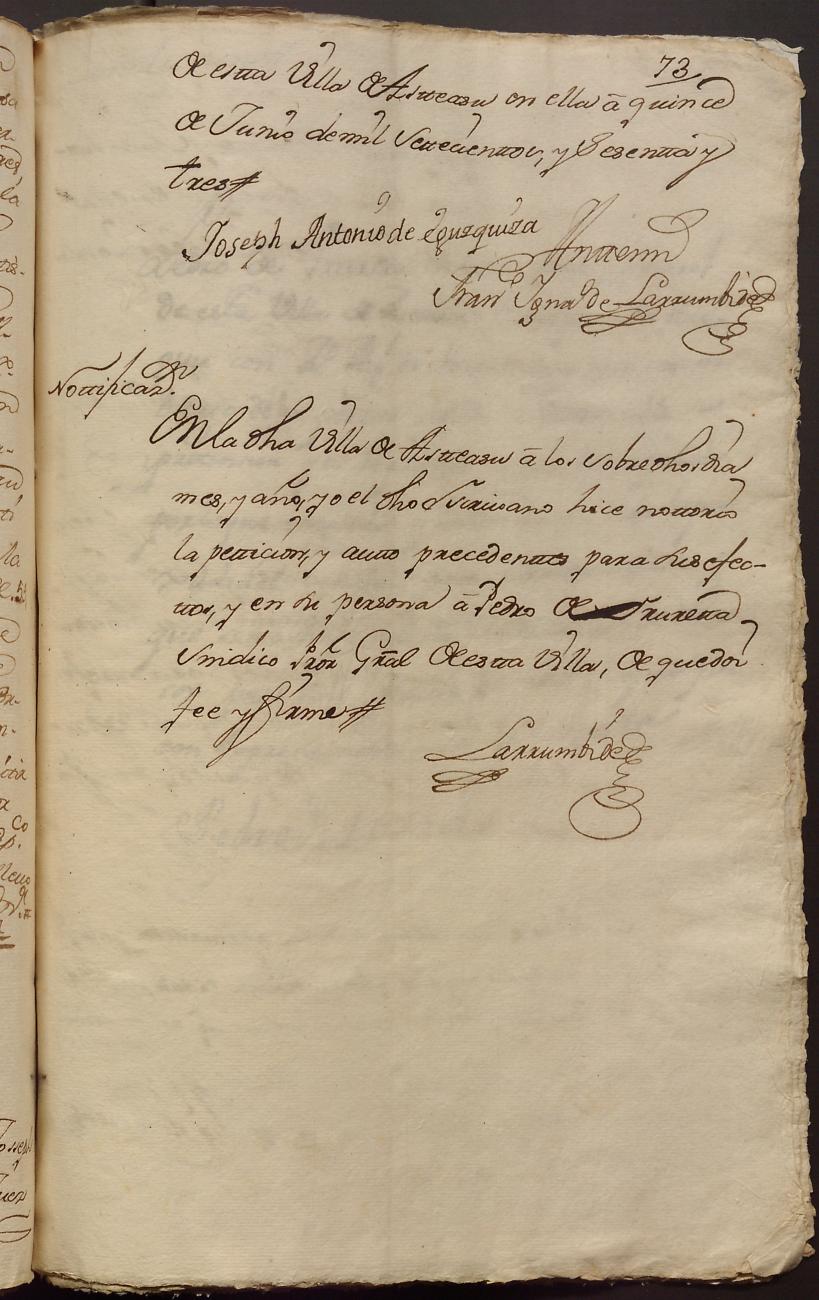 73
de estta Villa de Astteasu en ella â quince
de Junio de mil settecienttos, y sesentta y
tres
Joseph Antonio de Eguzquiza
Antte mi
Fran.co Igna.o de Larrumbide
Nottificaz.n
En la dha Villa de Astteasu â los sobredhos dia
mes, y año, yo el dho Scrivano hice nottorio
la pettición, y autto precedenttes para sus efec-
ttos, y en su persona â Pedro de Iruretta
Sindico Pror Gral de estta Villa, de que doi
fee y firme
Larrumbide